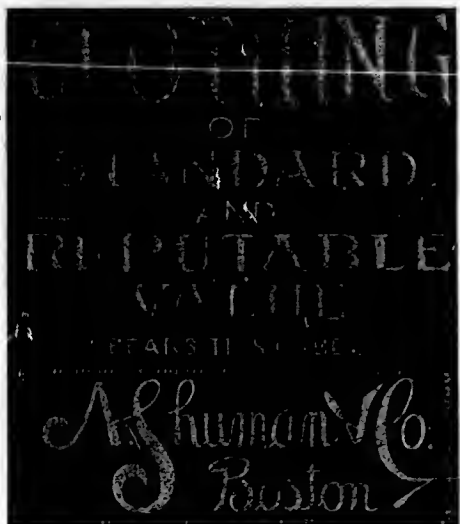 CLOTHING
OF
STANDARD
AND
REPUTABLE
VALUE
BEARS THIS
A Shuman & Co.
Boston